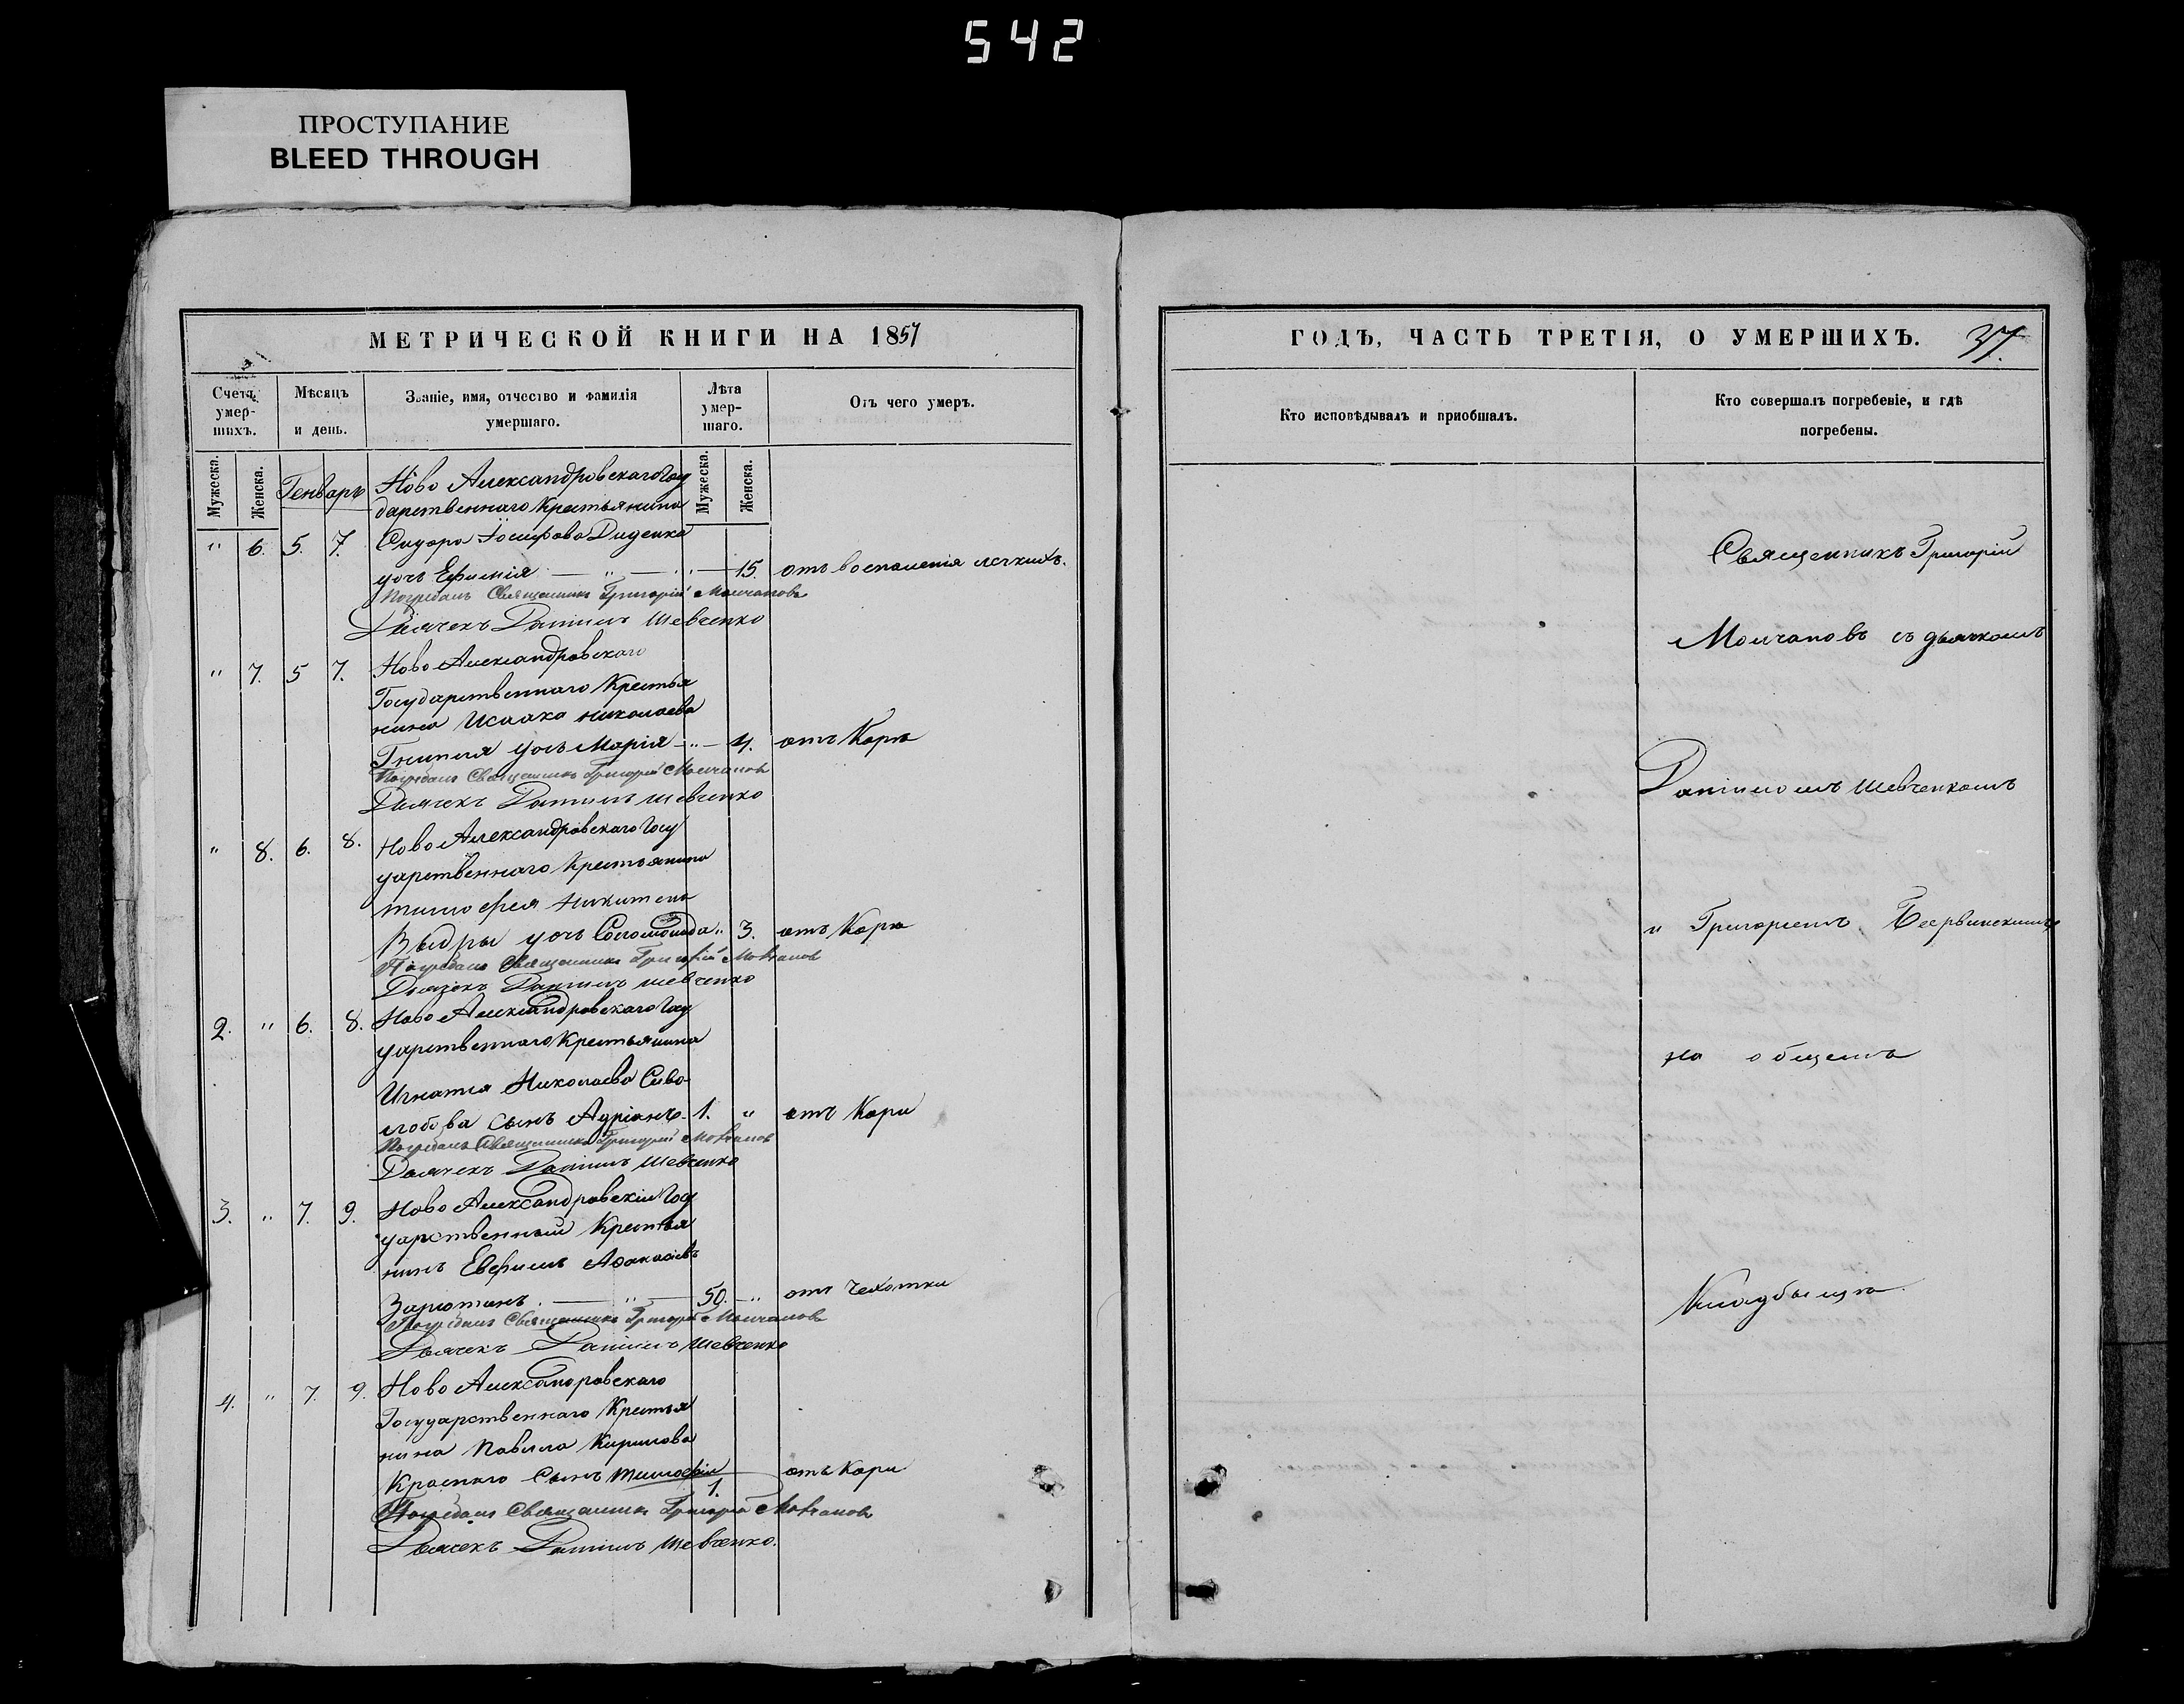 542
ПРОСТУПАНИЕ
BLEED THROUGH
МЕТРИЧЕСКОЙ КНИГИ НА 1857
Счетъ умер-шихъ.
Мѣсяцъ и день.
Званіе, имя, отчество и фамилія умершаго.
Лѣта умер-шаго.
Отъ чего умеръ.
Мужеска. Женска. Генварь Мужеска. Женска.
Ново Александровскаго Госу
дарственнаго Крестьянина
" 6. 5. 7. Сидора Іосифова Диденка
дочь Ефимія — " — " — 15. отъ воспаленія легкихъ.
Погребалъ Священникъ Григорій Молчановъ
Дьячекъ Даніилъ Шевченко
" 7. 5 7. Ново Александровскаго
Государственнаго Крестья
нина Исаака Николаева
дочь Марія — " — 4. отъ Кори
Погребалъ Священникъ Григорій Молчановъ
Дьячекъ Даніилъ Шевченко
" 8. 6. 8. Ново Александровскаго Госу
дарственнаго Крестьянина
Тимофея Никитина
Выдры дочь Соломонида " 3. отъ Кори
Погребалъ Священникъ Григорій Молчановъ
Дьячекъ Даніилъ Шевченко
2. " 6. 8. Ново Александровскаго Госу
дарственнаго Крестьянина
Игнатія Николаева Сиво
лобова сынъ Адріанъ 1. " отъ Кори
Погребалъ Священникъ Григорій Молчановъ
Дьячекъ Даніилъ Шевченко
3. " 7. 9. Ново Александровскій Госу
дарственный Крестья
нинъ Афанасіевъ
— " — 50. — " отъ Чехотки
Погребалъ Священникъ Григорій Молчановъ
Дьячекъ Даніилъ Шевченко
4. " 7. 9. Ново Александровскаго
Государственнаго Крестья
нина Павила Кирилова
Краснаго сынъ Тимофій 1. отъ Кори
Погребалъ Священникъ Григорій Молчановъ
Дьячекъ Даніилъ Шевченко.
ГОДЪ, ЧАСТЬ ТРЕТІЯ, О УМЕРШИХЪ. 37.
Кто исповѣдывалъ и приобщалъ.
Кто совершалъ погребеніе, и гдѣ погребены.
Священникъ Григорій
Молчановъ съ дьячкомъ
Даніиломъ Шевченкомъ
и Григоріемъ
на общемъ
Кладбищѣ.